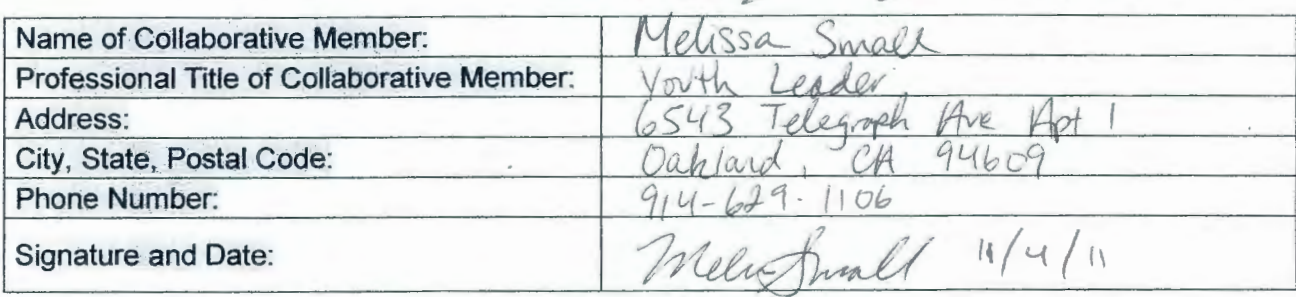 Name of Collaborative Member: Melissa Small
Professional Title of Collaborative Member: Youth Leader
Address: 6543 Telegraph Ave Apt 1
City, State, Postal Code: Oakland, CA 94609
Phone Number: 914-629-1106
Signature and Date: Melissa Small 11/4/11